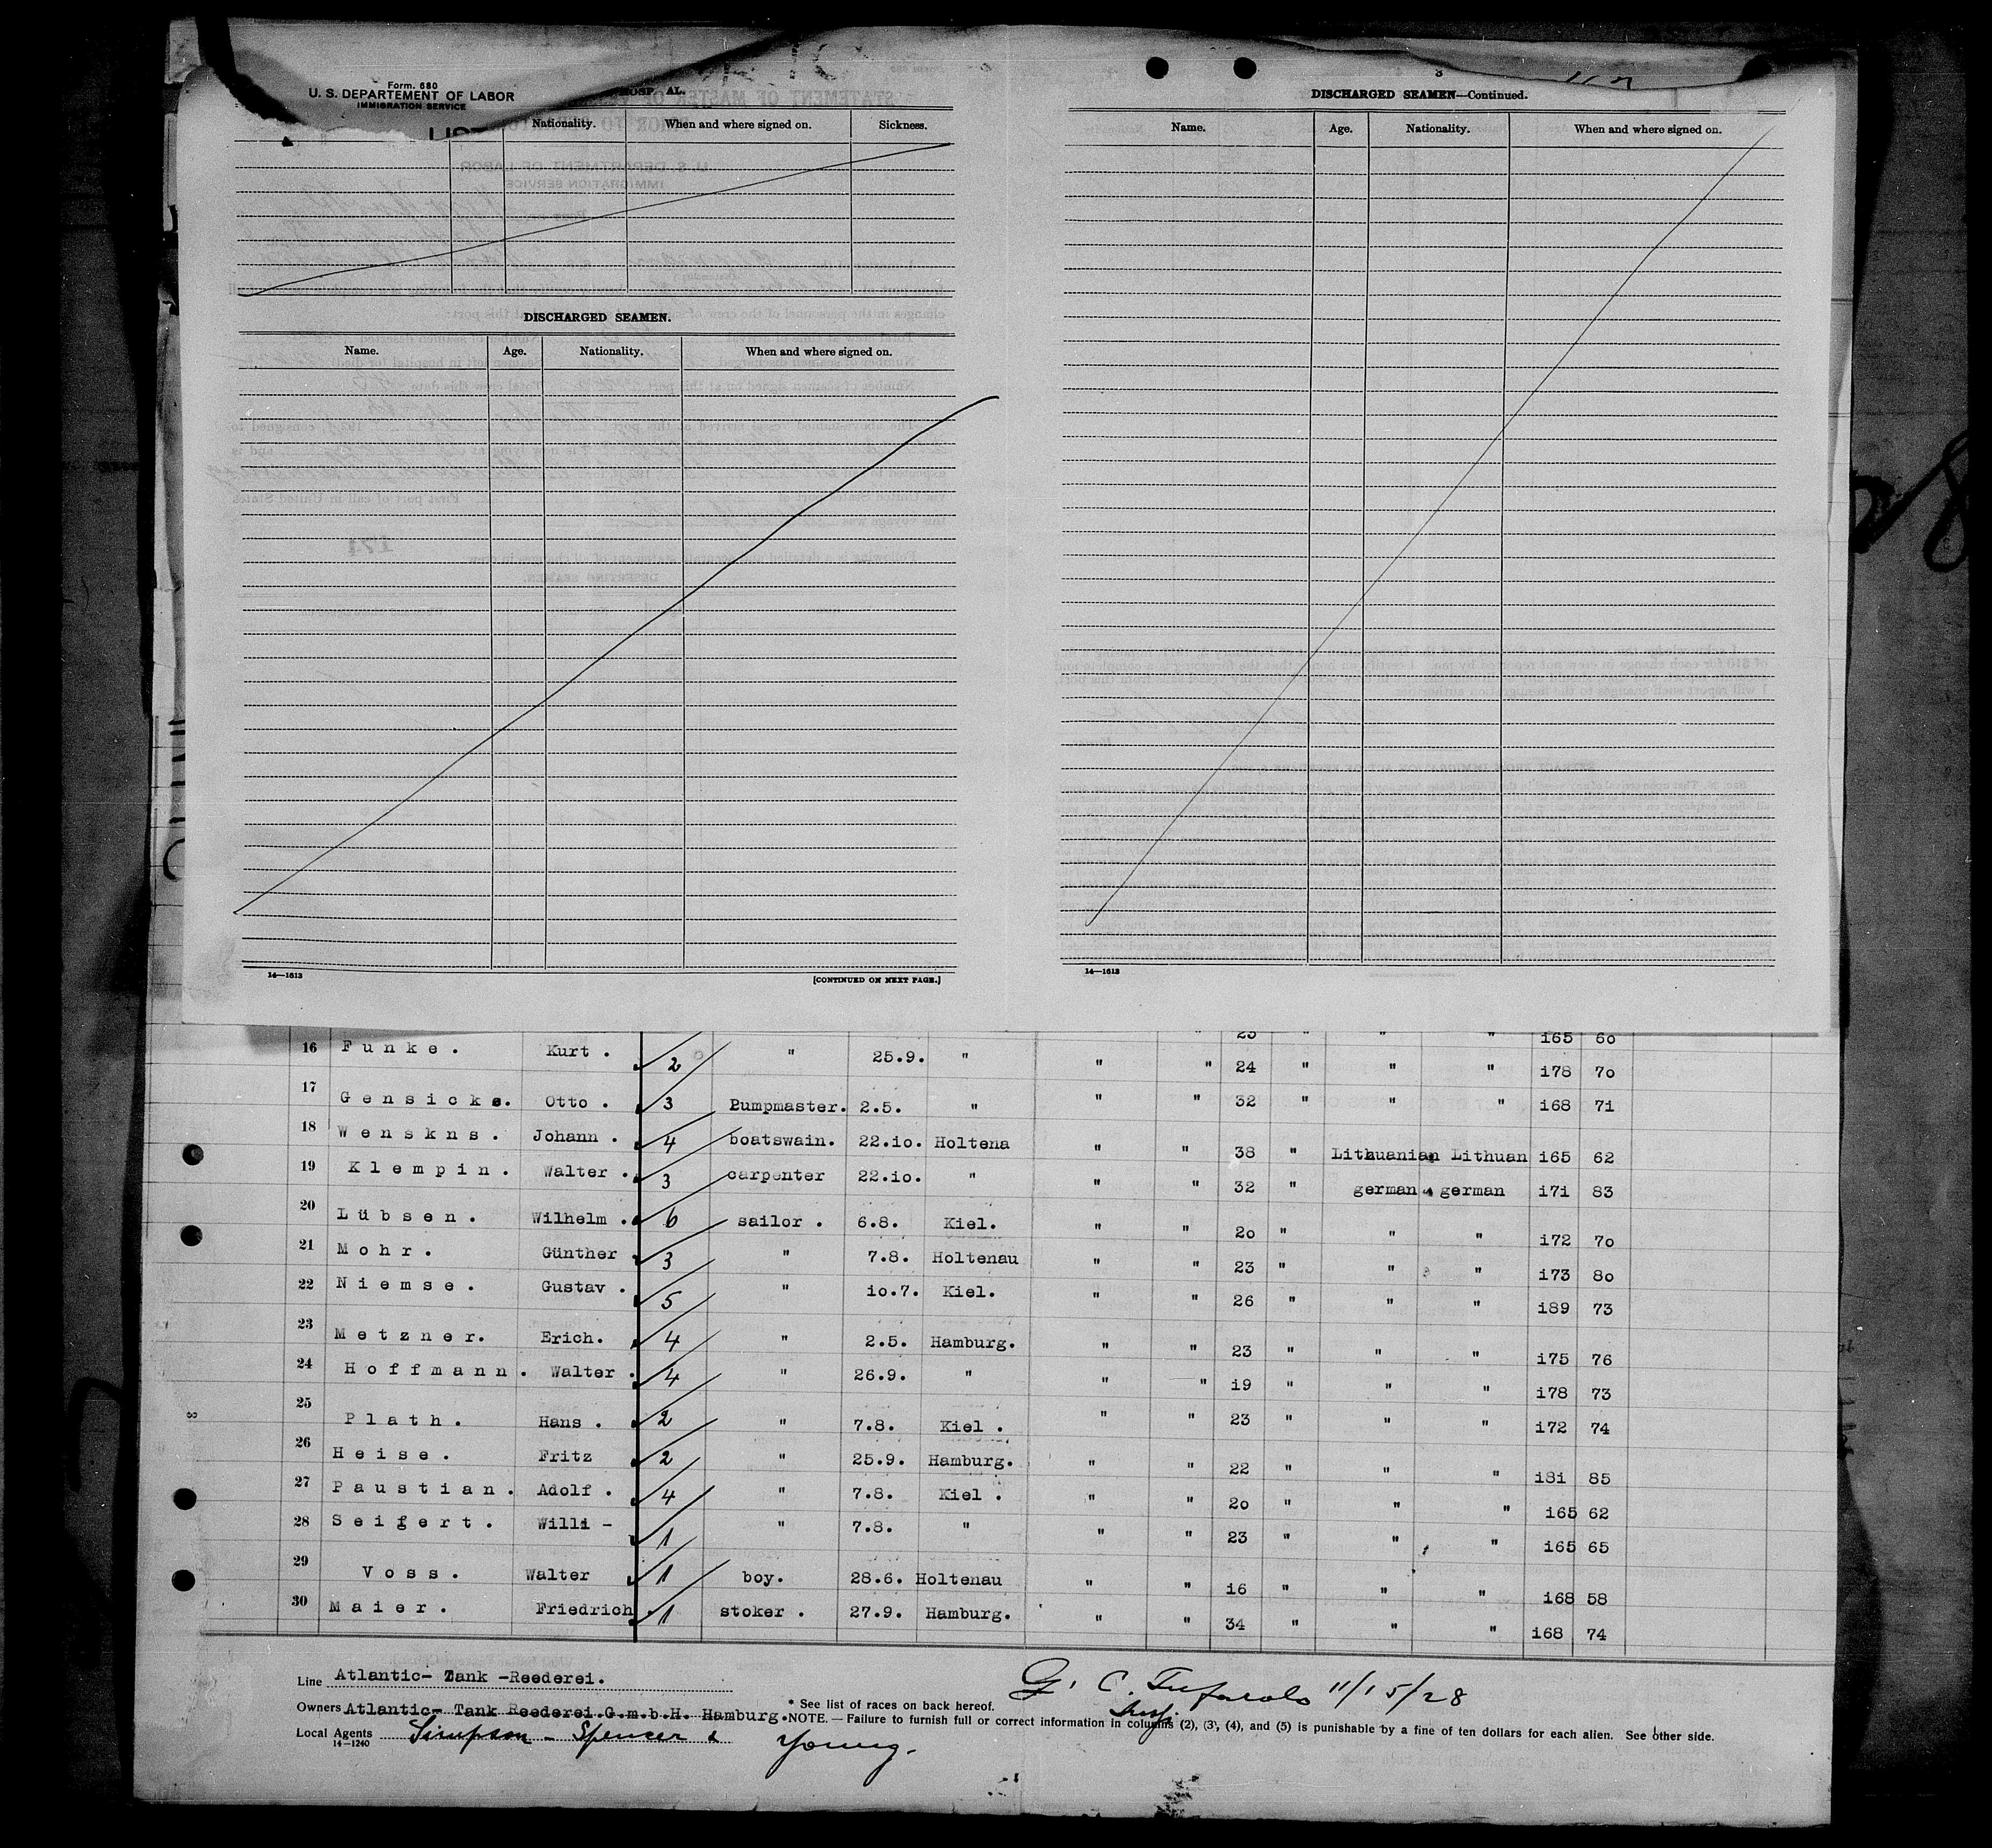 Form. 680
U. S. DEPARTMENT OF LABOR
IMMIGRATION SERVICE
Nationality. When and where signed on. Sickness.
DISCHARGED SEAMEN.
Name. Age. Nationality. When and where signed on.
14—1613 [CONTINUED ON NEXT PAGE.]
3
DISCHARGED SEAMEN—Continued.
Name. Age. Nationality. When and where signed on.
14—1613
" 25 " " " i65 60
16 Funke. Kurt. 2 " 25.9. " " " 24 " " " i78 70
17 Gensicke. Otto. 3 Pumpmaster. 2.5. " " " 32 " " " i68 7i
18 Wenskns. Johann. 4 boatswain. 22.io. Holtena " " 38 " Lithuanian Lithuan i65 62
19 Klempin. Walter. 3 carpenter 22.io. " " " 32 " german german i7i 83
20 Lübsen. Wilhelm. 6 sailor. 6.8. Kiel. " " 2o " " " i72 70
21 Mohr. Günther 3 " 7.8. Holtenau " " 23 " " " i73 8o
22 Niemse. Gustav. 5 " io.7. Kiel. " " 26 " " " i89 73
23 Metzner. Erich. 4 " 2.5. Hamburg. " " 23 " " " i75 76
24 Hoffmann. Walter. 4 " 26.9. " " " i9 " " " i78 73
25 Plath. Hans. 2 " 7.8. Kiel. " " 23 " " " i72 74
26 Heise. Fritz 2 " 25.9. Hamburg. " " 22 " " " i8i 85
27 Paustian. Adolf. 4 " 7.8. Kiel. " " 2o " " " i65 62
28 Seifert. Willi - 1 " 7.8. " " " 23 " " " i65 65
29 Voss. Walter 1 boy. 28.6. Holtenau " " i6 " " " i68 58
30 Maier. Friedrich. 1 stoker. 27.9. Hamburg. " " 34 " " " i68 74
Line Atlantic- Tank -Reederei.
Owners Atlantic- Tank Reederei.G.m.b.H. Hamburg.
Local Agents Simpson - Spencer & Young.
14—1240
* See list of races on back hereof.
G. C. 11/15/28
NOTE.—Failure to furnish full or correct information in columns (2), (3), (4), and (5) is punishable by a fine of ten dollars for each alien. See other side.